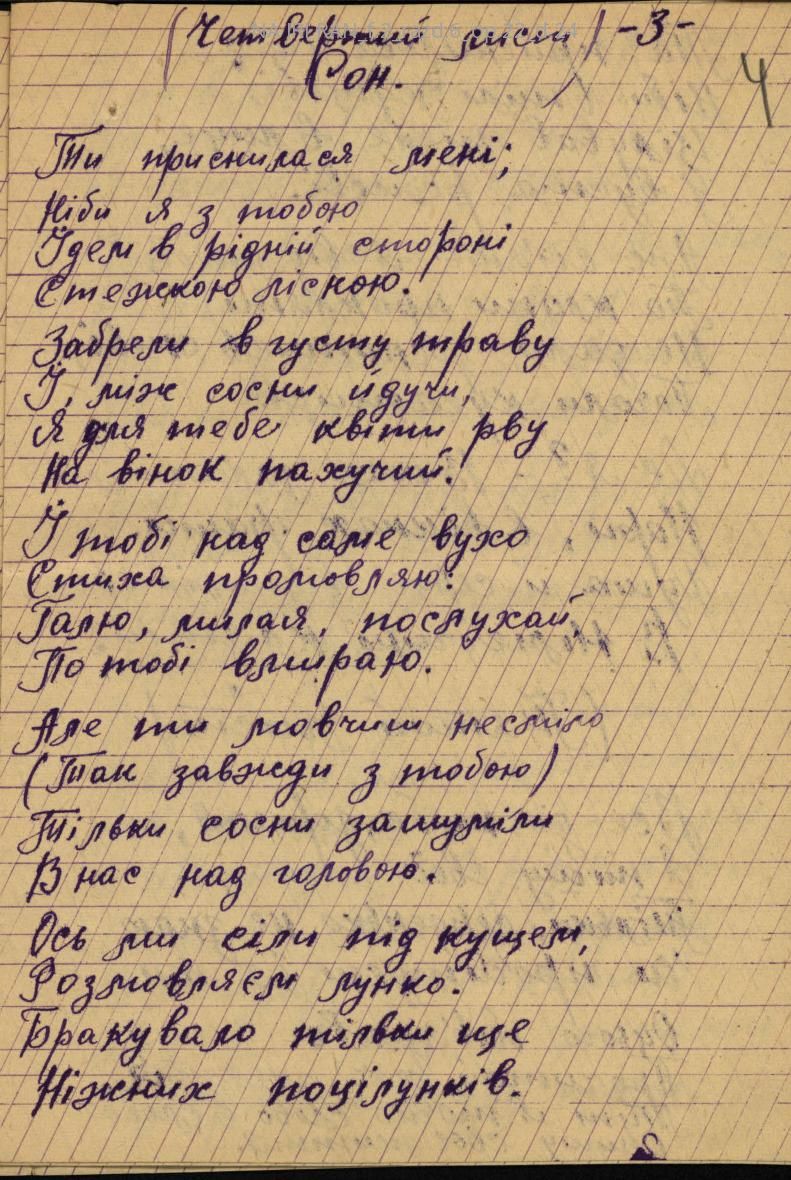 (Четвертий лист) -3-
Сон.
4
Ти приснилася мені;
Ніби я з тобою
Їдем в рідній стороні
Стежкою лісною.
Забрели в густу траву
Й, між сосни йдучи,
Я для тебе квіти рву
На вінок пахучий.
Й тобі над саме вухо
Стиха промовляю:
Галю, милая, послухай,
По тобі вмираю.
Але ти мовчиш несміло
(Так завжди з тобою)
Тільки сосни зашуміли
В нас над головою.
Ось ми сіли під кущем,
Розмовляєм лунко.
Бракувало тільки ще
Ніжних поцілунків.